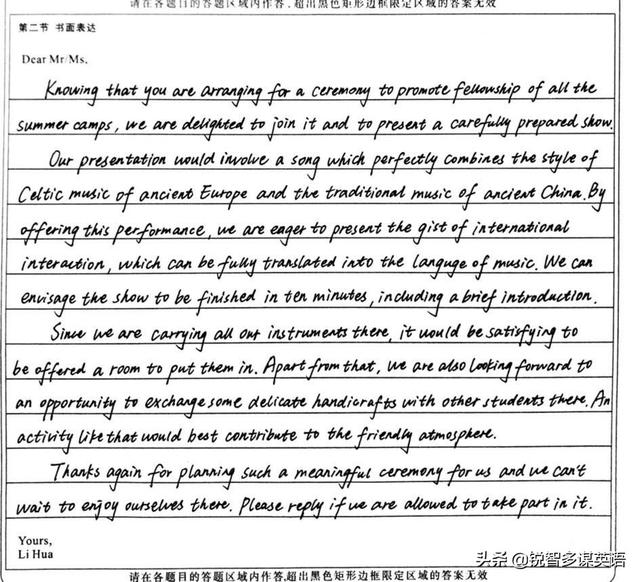 请在各题目的答题区域内作答,超出黑色矩形边框限定区域的答案无效
第二节 书面表达
Dear Mr/Ms,
Knowing that you are arranging for a ceremony to promote fellowship of all the
summer camps, we are delighted to join it and to present a carefully prepared show.
Our presentation would involve a song which perfectly combines the style of
Celtic music of ancient Europe and the traditional music of ancient China. By
offering this performance, we are eager to present the gist of international
interaction, which can be fully translated into the languge of music. We can
envisage the show to be finished in ten minutes, including a brief introduction.
Since we are carrying all our instruments there, it would be satisfying to
be offered a room to put them in. Apart from that, we are also looking forward to
an opportunity to exchange some delicate handicrafts with other students there. An
activity like that would best contribute to the friendly atmosphere.
Thanks again for planning such a meaningful ceremony for us and we can't
wait to enjoy ourselves there. Please reply if we are allowed to take part in it.
Yours,
Li Hua
头条@锐智多谋英语
请在各题目的答题区域内作答,超出黑色矩形边框限定区域的答案无效